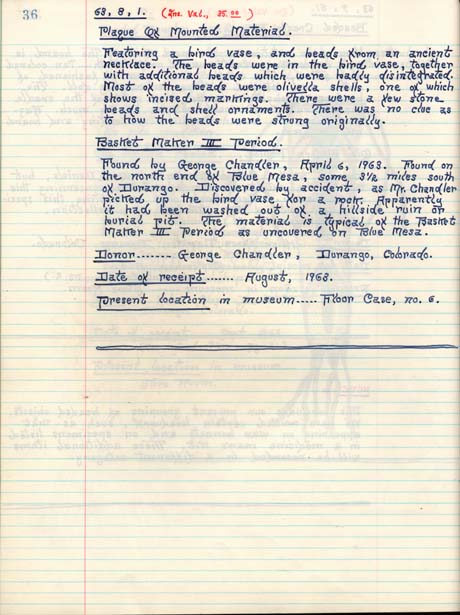 36
63, 8, 1. (Ins. Val., 35.00)
Plaque Of Mounted Material.
Featuring a bird vase, and beads from an ancient
necklace. The beads were in the bird vase, together
with additional beads which were badly disintegrated.
Most of the beads were olivella shells, one of which
shows incised markings. There were a few stone
beads and shell ornaments. There was no clue as
to how the beads were strong originally.
Basket Maker III Period.
Found by George Chandler, April 6, 1963. Found on
the north end of Blue Mesa, some 3½ miles south
of Durango. Discovered by accident, as Mr. Chandler
picked up the bird vase for a rock. Apparently
it had been washed out of a hillside ruin or
burial pit. The material is typical of the Basket
Maker III Period as uncovered on Blue Mesa.
Donor....... George Chandler, Durango, Colorado.
Date of receipt....... August, 1963.
Present location in museum..... Floor Case, no. 6.